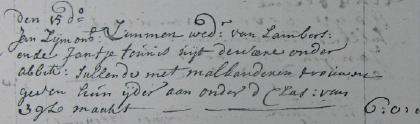 den 15 do
Jan Zijmonsz Zimmen wedr: van Lambert:
ende Jantje teunis uijt de Wære onder
abbek: Sullende met malkanderen trouwen
geven hun ijder aan onder d Clas: van
3 gl maakt 6:0:0